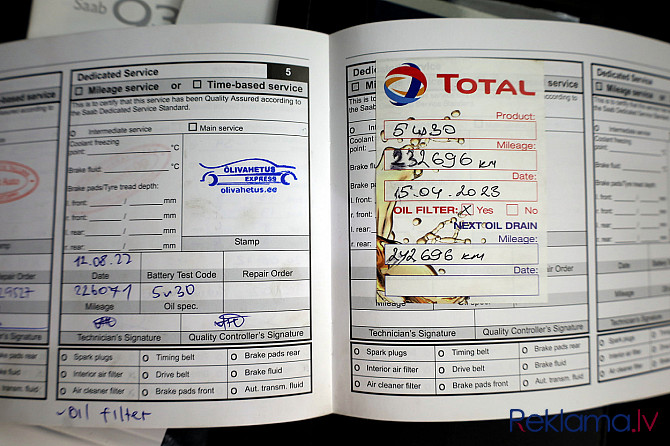 Saab 03
ed-based service
Dedicated Service 5
Mileage service or Time-based service
This is to certify that this service has been Quality Assured according to
the Saab Dedicated Service Standard.
Intermediate service Main service
Coolant freezing
point: °C
Brake fluid: °C
Brake pads/Tyre tread depth:
l. front: / mm
r. front: / mm
l. rear: / mm
r. rear: / mm
OLIVAHETUS
EXPRESS
olivahetus.ee
Stamp
12.08.22
Date Battery Test Code Repair Order
226071 5w30
Mileage Oil spec.
Technician's Signature Quality Controller's Signature
Spark plugs Timing belt Brake pads rear
Interior air filter Drive belt Brake fluid
Air cleaner filter Brake pads front Aut. transm. fluid
oil filter
Repair Order
29527
Signature
Brake pads rear
Brake fluid
Aut. transm. fluid
TOTAL
Product:
5w30
Mileage:
232696 km
Date:
15.04.2023
OIL FILTER: X Yes No
NEXT OIL DRAIN
Mileage:
242696 km
Date:
Technician's Signature Quality Controller's Signature
Spark plugs Timing belt Brake pads rear
Interior air filter Drive belt Brake fluid
Air cleaner filter Brake pads front Aut. transm. fluid
Dedicated Service
Mileage service
This is to certify that this
the Saab Dedicated
Intermediate
Coolant freezing
point:
Brake fluid:
Brake pads/Tyre
l. front:
r. front:
l. rear:
r. rear:
Date
Mileage
Technician's
Spark plugs
Interior air filter
Air cleaner filter
Reklama.lv